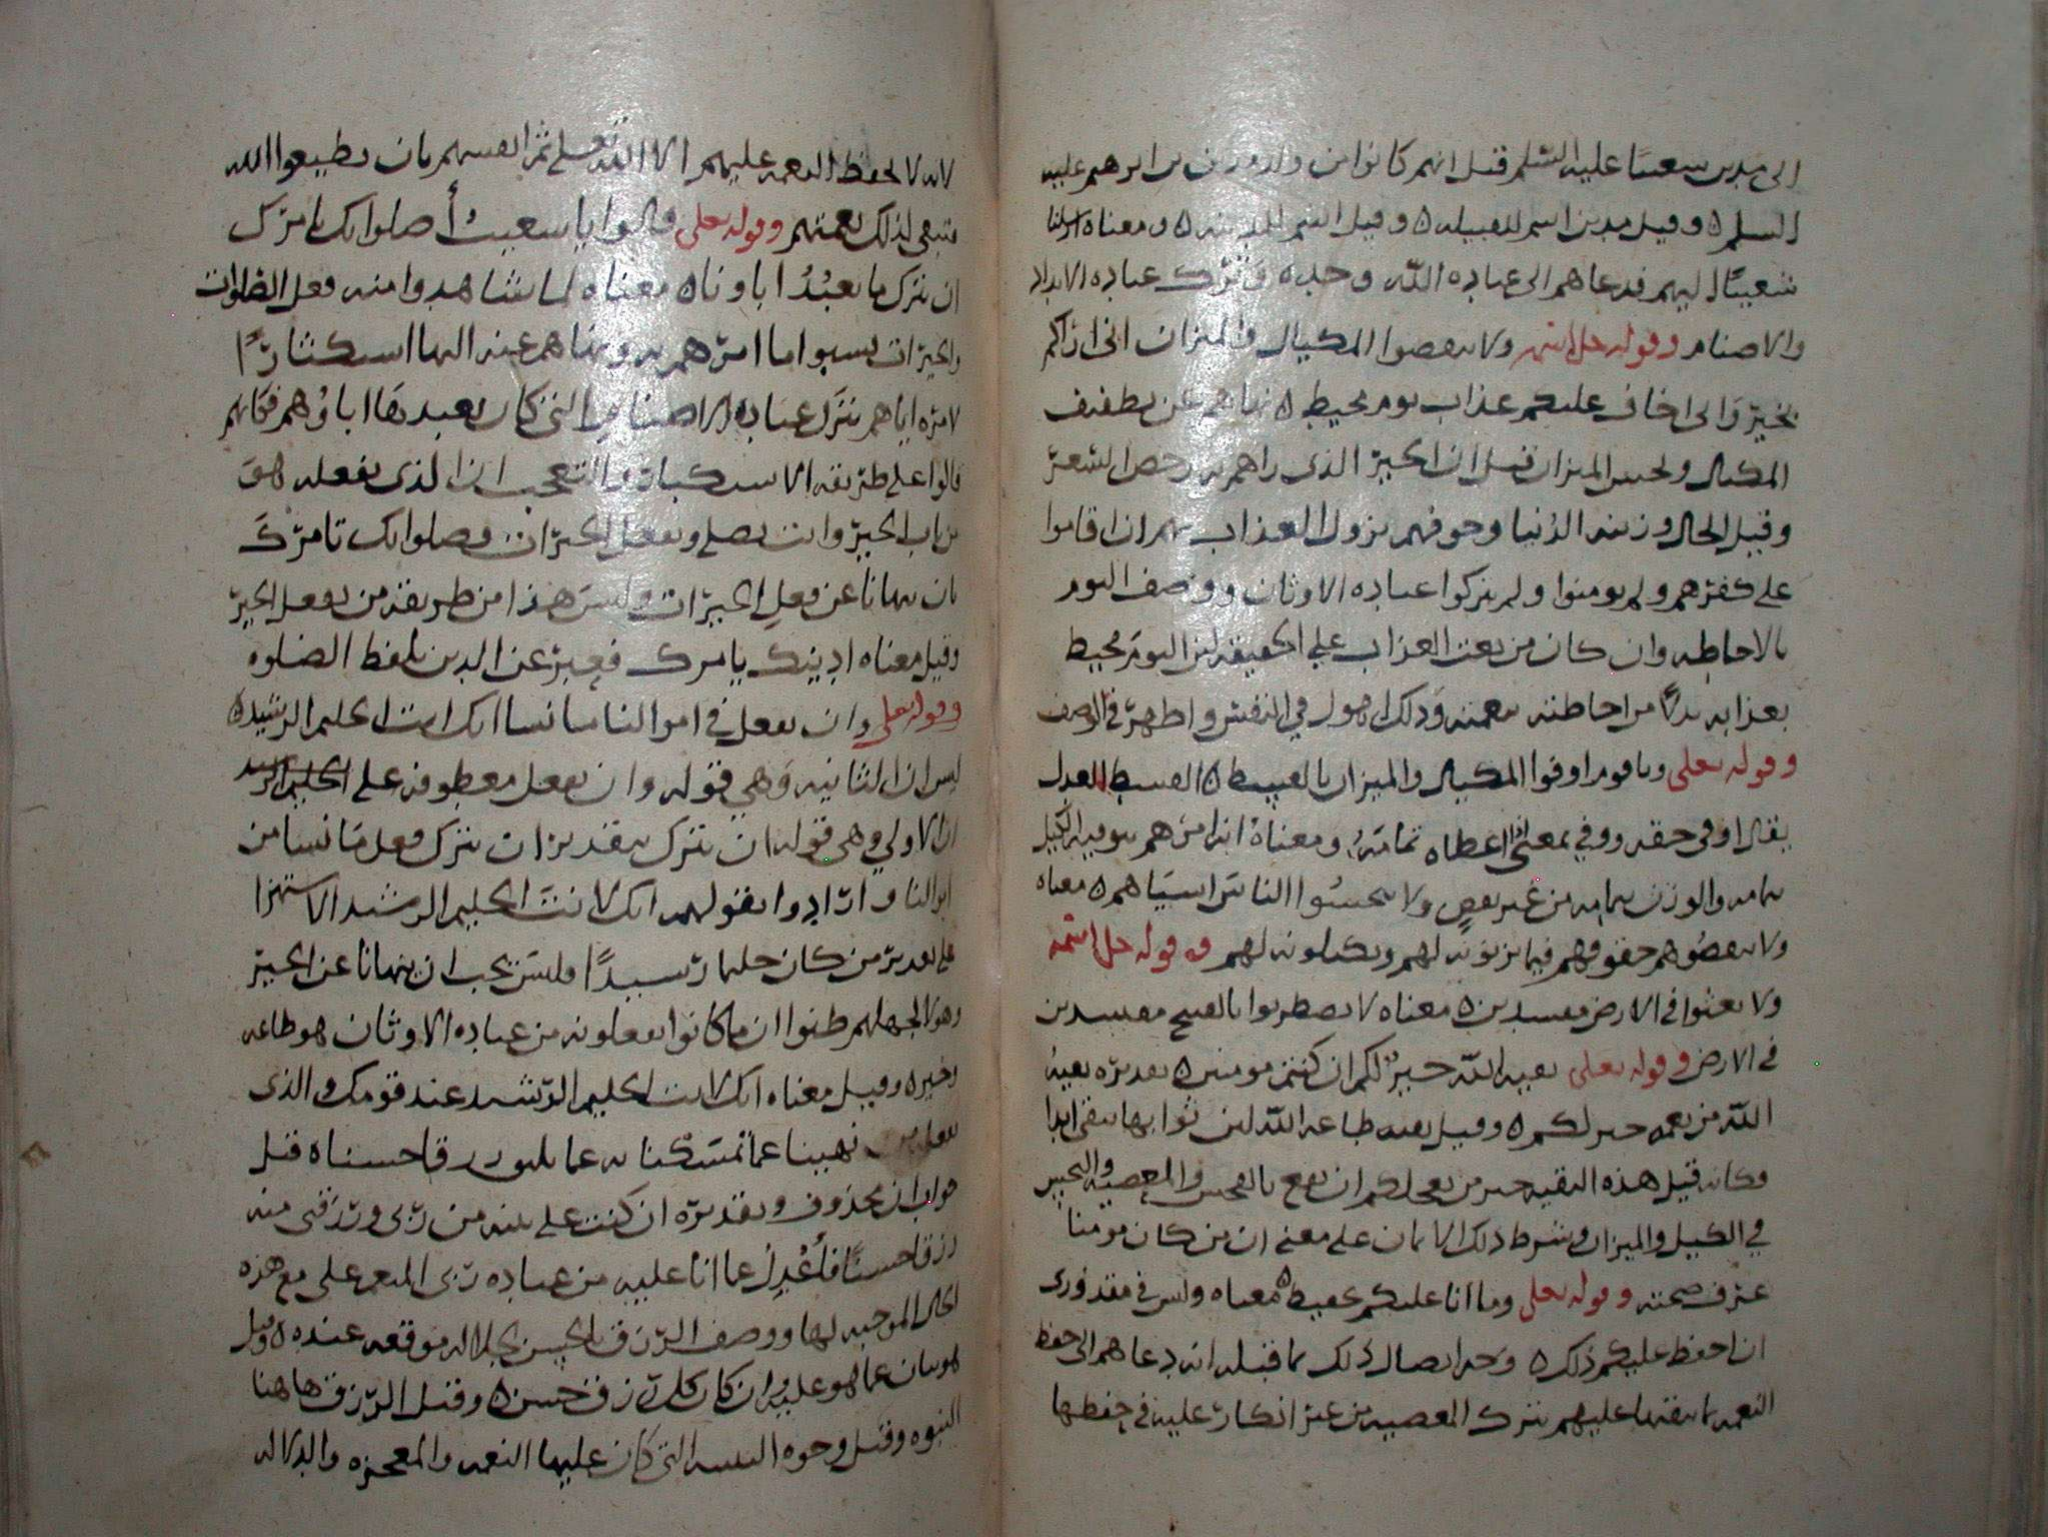 الى مدين شعيبا عليه السلم قيل انهم كانوا من ولد مدين بن ابرهيم عليه
السلم ٥ وقيل مدين اسم للقبيله ٥ وقيل اسم للمدينه ٥ ومعناه ارسلنا
شعيبًا اليهم فدعاهم الى عباده الله وحده وترك عباده الانداد
والاصنام وقوله جل اسمه ولا تنقصوا المكيال والميزان انى اراكم
بخير وانى اخاف عليكم عذاب يوم محيط ٥ نهاهم عن تطفيف
المكيال وبخس الميزان قيل ان الخير الذى راهم به رخص السعر
وقيل المال وزينه الدنيا وخوفهم نزول العذاب بهم ان اقاموا
على كفرهم ولم يومنوا ولم يتركوا عباده الاوثان ووصف اليوم
بالاحاطه وان كان من نعت العذاب على الحقيقه لان اليوم محيط
بعذابه بدلًا من احاطته بنعمته وذلك اهول في النفس واظهر في الوصف
وقوله تعلى وياقوم اوفوا المكيال والميزان بالقسط ٥ القسط العدل
يقال اوفى حقه ووفي بمعنى اعطاه تمامه ومعناه انه امرهم بتوفيه الكيل
تمامه والوزن تمامه من غير نقص ولا تبخسوا الناس اشياهم ٥ معناه
ولا تنقصوهم حقوقهم فيما تزنونه لهم وتكيلونه لهم وقوله جل اسمه
ولا تعثوا في الارض مفسدين ٥ معناه لا تضطربوا بالقبيح مفسدين
في الارض وقوله تعلى بقيه الله خير لكم ان كنتم مومنين ٥ تقديره بقيه
الله من نعمه خير لكم ٥ وقيل بقيه طاعه الله لان ثوابها يبقى ابدا
وكانه قيل هذه البقيه خير من تعجلكم ان نفع بالبخس والمعصيه
في الكيل والميزان وشرط ذلك الايمان على معنى ان من كان مومنا
عرف صحته وقوله تعلى وما انا عليكم بحفيظ ٥ معناه وليس في مقدورى
ان احفظ عليكم ذلك ٥ وجه اتصال ذلك بما قبله انه دعاهم الى حفظ
النعمه بما يبقيها عليهم بترك المعصيه من غير انكار عليه في حفظها
لانه لا يحفظ النعمه عليهم الا الله تعلى ثم انفسهم بان يطيعوا الله
فتبقى لذلك نعمتهم وقوله تعلى قالوا يا شعيب أصلواتك تامرك
ان نترك ما يعبُدُ اباونا ٥ معناه لما شاهدوا منه فعل الصلوات
والخيرات نسبوا ما امرهم به ونهاهم عنه اليها استكثارًا
لامره اياهم بترك عباده الاصنام التى كان يعبدها اباوهم فكانهم
قالوا على طريقه الاستكبار والتعجب ان الذى تفعله هو
من باب الخير وانت تصلى وتفعل الخيرات وصلواتك تامرك
بان تنهانا عن فعل الخيرات وليس هذا من طريقه من يفعل الخير
وقيل معناه ادينك يامرك فعبر عن الدين بلفظ الصلوه
وقوله تعلى وان نفعل في اموالنا ما نشا انك لانت الحليم الرشيد ٥
ليس ان الثانيه وهي قوله وان نفعل معطوفه على
ان الاولي وهى قوله ان نترك بتقدير ان نترك فعل ما نشا من
اموالنا وارادوا بقولهم انك لانت الحليم الرشيد الاستهزا
على تقدير من كان حليما رشيدًا فليس يجب ان ينهانا عن الخير
وهولا لجهلهم ظنوا ان ما كانوا يفعلونه من عباده الاوثان هو طاعه
وخير ٥ وقيل معناه انك لانت الحليم الرشيد عند قومك والذى
نهيتنا عما تمسكنا به رزقا حسنا ٥ قيل
جواب ان محذوف وتقديره ان كنت على بينه من ربى ورزقنى منه
رزقا حسنًا فأعْدِل عما انا عليه من عباده ربى المنعم على مع هذه
الحال الموجبه لها ووصف الرزق بالحسن لجلاله موقعه عنده ٥ وقيل
هو بيان عما هو عليه وان كان كل رزق حسن ٥ وقيل الرزق هاهنا
النبوه وقيل وجوه البينه التى كان عليها النعمه والمعجزه والدلاله